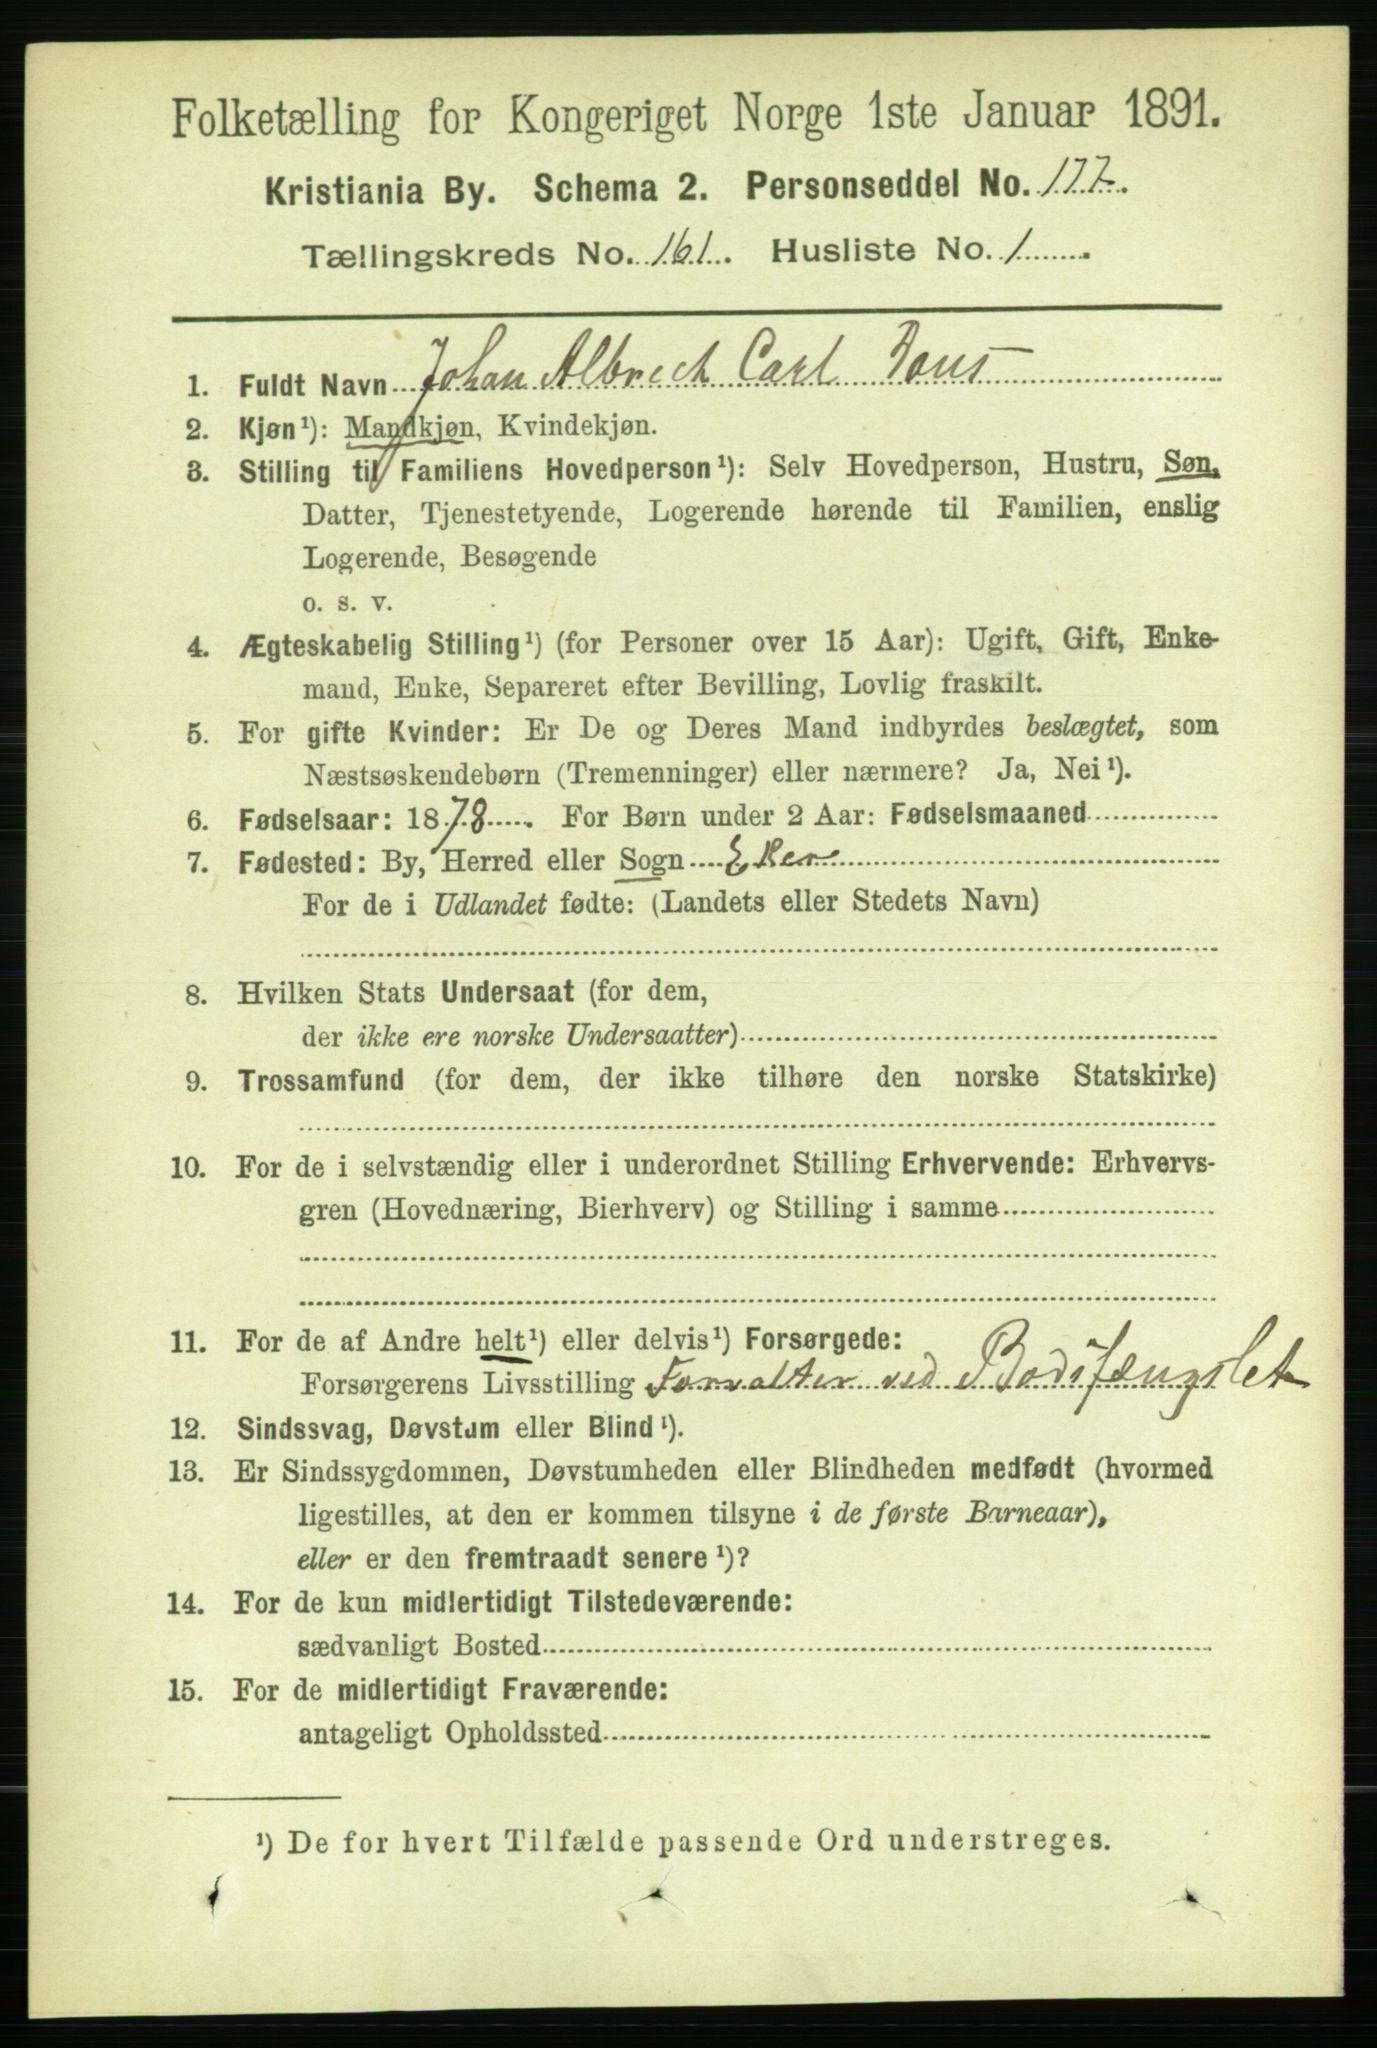 Folketælling for Kongeriget Norge 1ste Januar 1891.
Kristiania By. Schema 2. Personseddel No. 177.
Tællingskreds No. 161. Husliste No. 1
1. Fuldt Navn Johan Albrech Carl
2. Kjøn¹): Mandkjøn, Kvindekjøn.
3. Stilling til Familiens Hovedperson¹): Selv Hovedperson, Hustru, Søn,
Datter, Tjenestetyende, Logerende hørende til Familien, enslig
Logerende, Besøgende
o. s. v.
4. Ægteskabelig Stilling¹) (for Personer over 15 Aar): Ugift, Gift, Enke-
mand, Enke, Separeret efter Bevilling, Lovlig fraskilt.
5. For gifte Kvinder: Er De og Deres Mand indbyrdes beslægtet, som
Næstsøskendebørn (Tremenninger) eller nærmere? Ja, Nei¹).
6. Fødselsaar: 1878. For Børn under 2 Aar: Fødselsmaaned
7. Fødested: By, Herred eller Sogn Eker
For de i Udlandet fødte: (Landets eller Stedets Navn)
8. Hvilken Stats Undersaat (for dem,
der ikke ere norske Undersaatter)
9. Trossamfund (for dem, der ikke tilhøre den norske Statskirke)
10. For de i selvstændig eller i underordnet Stilling Erhvervende: Erhvervs-
gren (Hovednæring, Bierhverv) og Stilling i samme
11. For de af Andre helt¹) eller delvis¹) Forsørgede:
Forsørgerens Livsstilling Forvalter ved Bodsfængslet
12. Sindssvag, Døvstum eller Blind¹).
13. Er Sindssygdommen, Døvstumheden eller Blindheden medfødt (hvormed
ligestilles, at den er kommen tilsyne i de første Barneaar),
eller er den fremtraadt senere¹)?
14. For de kun midlertidigt Tilstedeværende:
sædvanligt Bosted
15. For de midlertidigt Fraværende:
antageligt Opholdssted
¹) De for hvert Tilfælde passende Ord understreges.